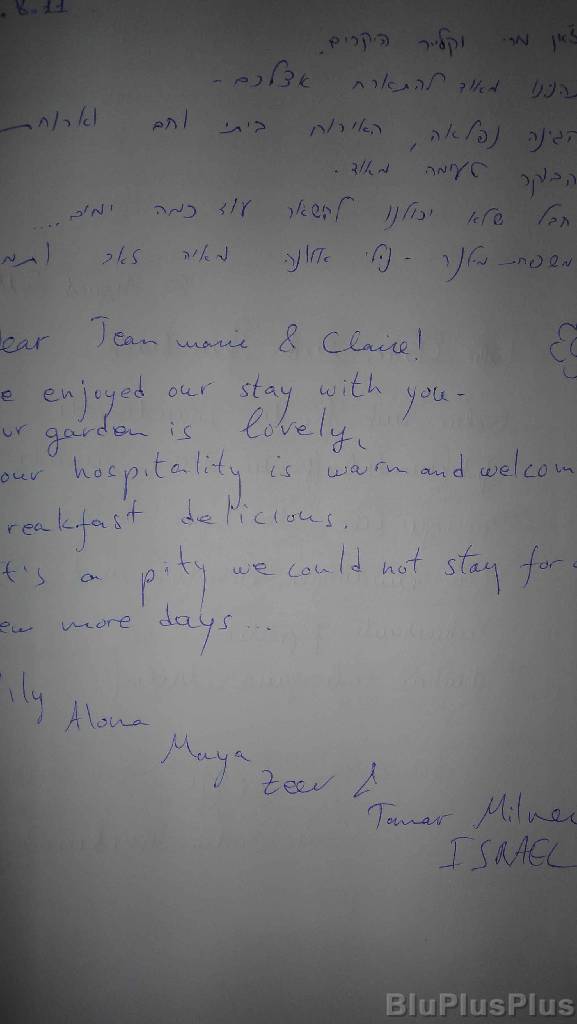 .8.11
ז'אן מרי וקלייר היקרים.
נהננו מאוד להתארח אצלכם -
הגינה נפלאה, האירוח ביתי וחם וארוחת
הבוקר טעימה מאוד.
חבל שלא יכולנו להשאר עוד כמה ימים....
משפחת מילנר - לילי אלונה מאיה זאב ותמר
ear Jean marie & Claire!
e enjoyed our stay with you-
ur garden is lovely,
our hospitality is warm and welcom
reakfast delicious.
t's a pity we could not stay for a
ew more days...
ily
Alona
Maya
Zeev &
Tamar Milner
ISRAEL
BluPlusPlus